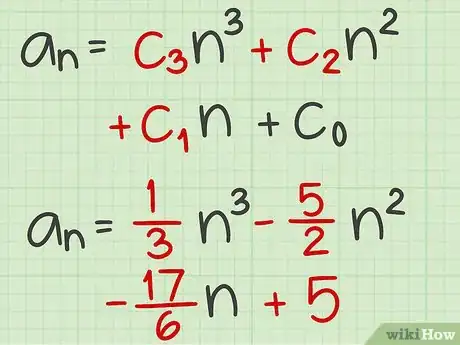 aₙ = C₃n³ + C₂n²
+ C₁n + C₀
aₙ = 1/3 n³ - 5/2 n²
- 17/6 n + 5
wikiHow